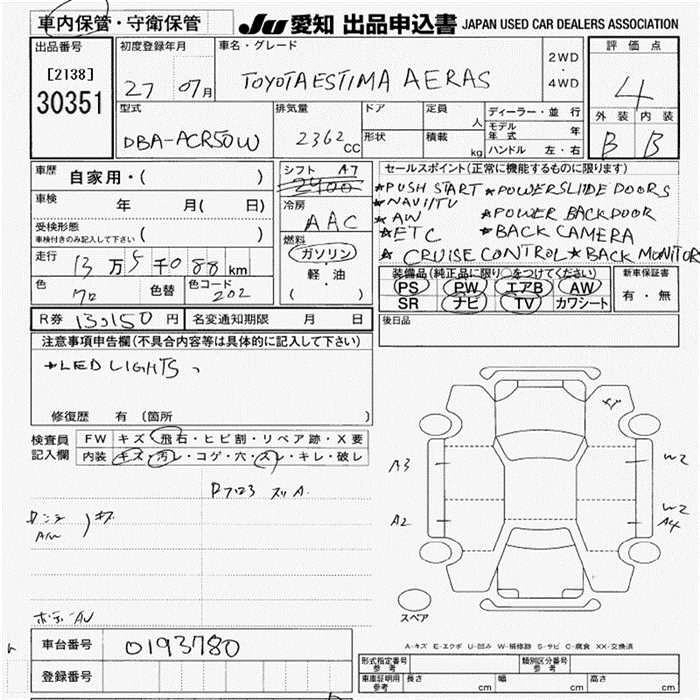 車内保管・守衛保管
JU 愛知 出品申込書 JAPAN USED CAR DEALERS ASSOCIATION
出品番号 初度登録年月 車名・グレード 評価点
[2138] 27 07月 TOYOTA ESTIMA AERAS 2WD・4WD 4
30351
型式 排気量 ドア 定員 ディーラー・並行 外装 内装
DBA-ACR50W 2362CC 形状 人 モデル年式 年 B B
積載 kg ハンドル 左・右
車歴 自家用・( ) シフト A7 セールスポイント(正常に機能するものに限ります)
2400
車検 年 月( 日) 冷房 AAC
★PUSH START ★POWERSLIDE DOORS
★NAVI/TV
★AW ★POWER BACKDOOR
★ETC ★BACK CAMERA
★CRUISE CONTROL ★BACK MONITOR
受検形態
車検付きのみ記入して下さい ( ) 燃料 ガソリン
走行 13万5千088km 軽・油
( )
装備品(純正品に限り○をつけてください) 新車保証書
PS PW エアB AW 有・無
SR ナビ TV カワシート
色 クロ 色替 色コード 202
R券 13,150円 名変通知期限 月 日 後日品
注意事項申告欄(不具合内容等は具体的に記入して下さい)
★LED LIGHTS
修復歴 有 (箇所 )
検査員 FW キズ・飛石・ヒビ割・リペア跡・X要
記入欄 内装 キズ・汚レ・コゲ・穴・スレ・キレ・破レ
スリA
キズ
AW
A3 W2
A2 W2
A4
スペア
A-キズ E-エクボ U-凹み W-補修跡 S-サビ C-腐食 XX-交換済
車台番号 0193780
登録番号
形式指定番号 参考 類別区分番号 参考
車庫証明用 参考 長さ cm 幅 cm 高さ cm